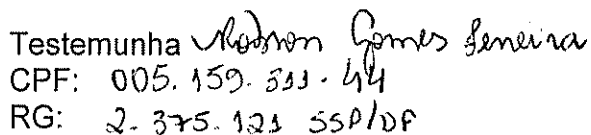 Testemunha Robson Gomes Ferreira
CPF: 005.159.511-44
RG: 2.375.121 SSP/DF